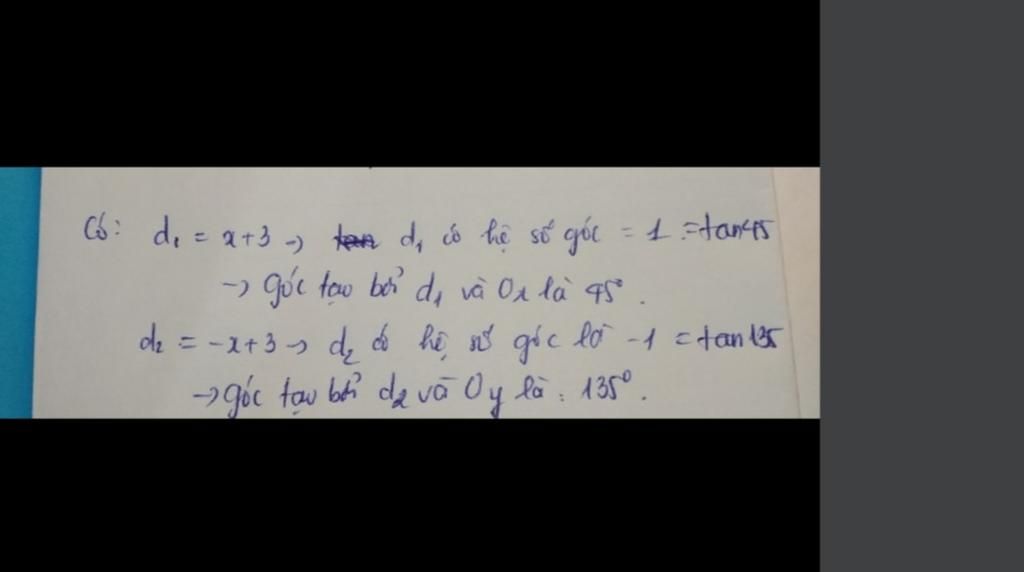 Có: d₁ = x+3 → d₁ có hệ số góc = 1 = tan45
→ góc tạo bởi d₁ và Ox là 45°.
d₂ = -x+3 → d₂ có hệ số góc là -1 = tan 135
→ góc tạo bởi d₂ và Oy là: 135°.